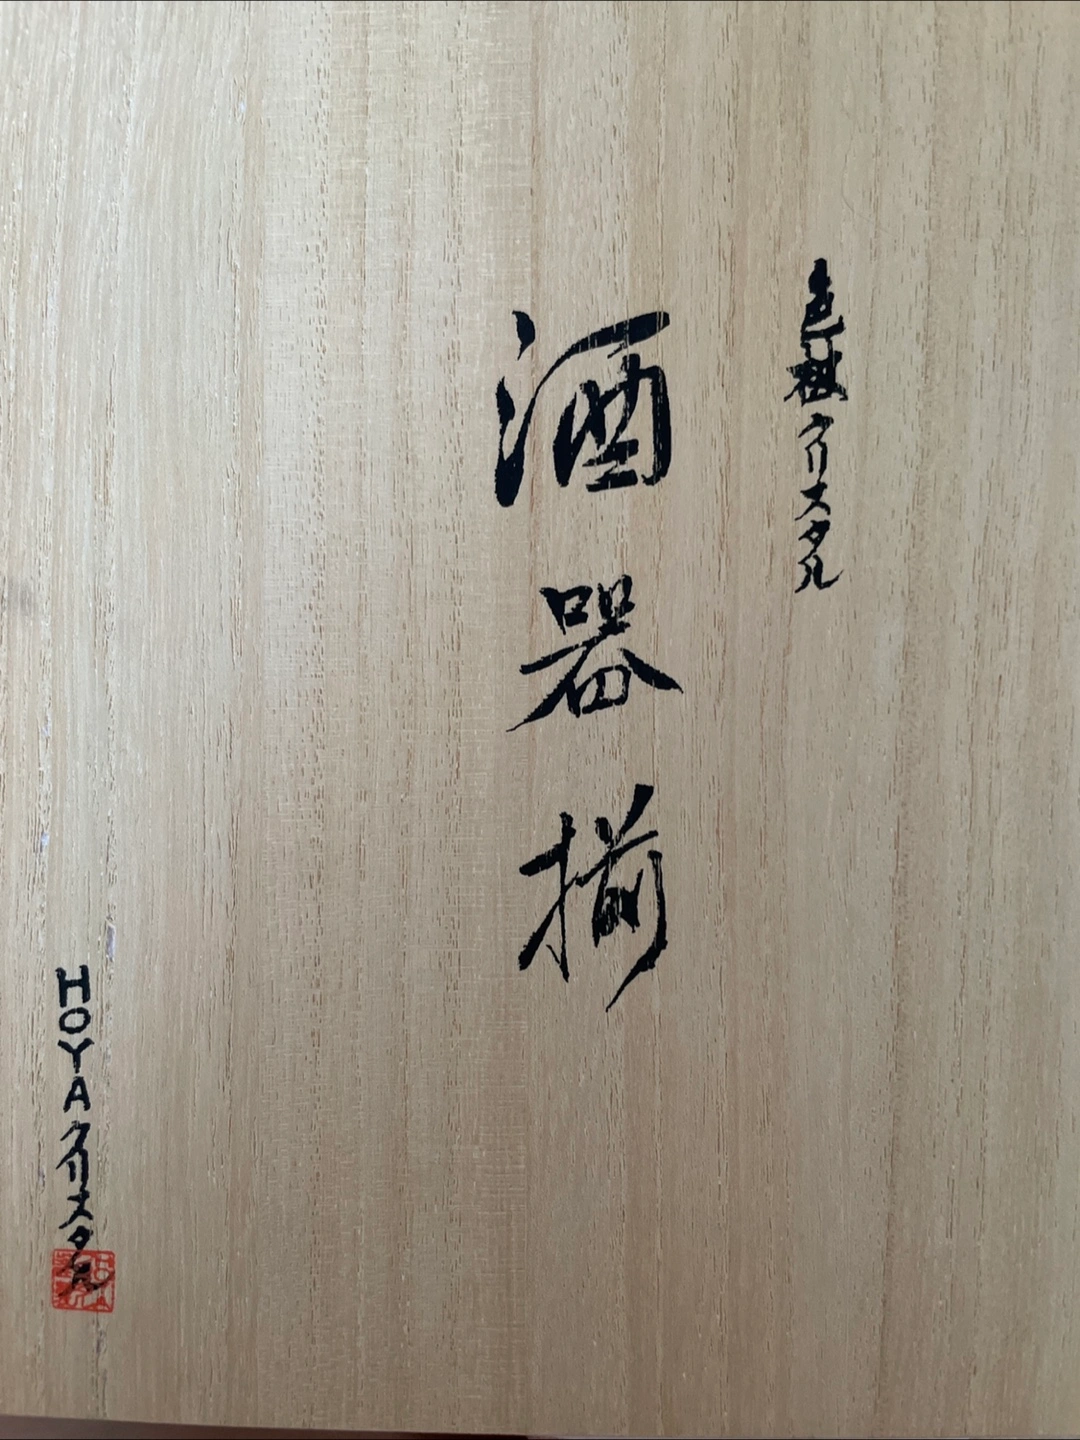 色被クリスタル
酒器揃
HOYAクリスタル